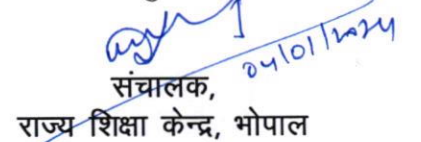 04/01/2024
संचालक,
राज्य शिक्षा केन्द्र, भोपाल